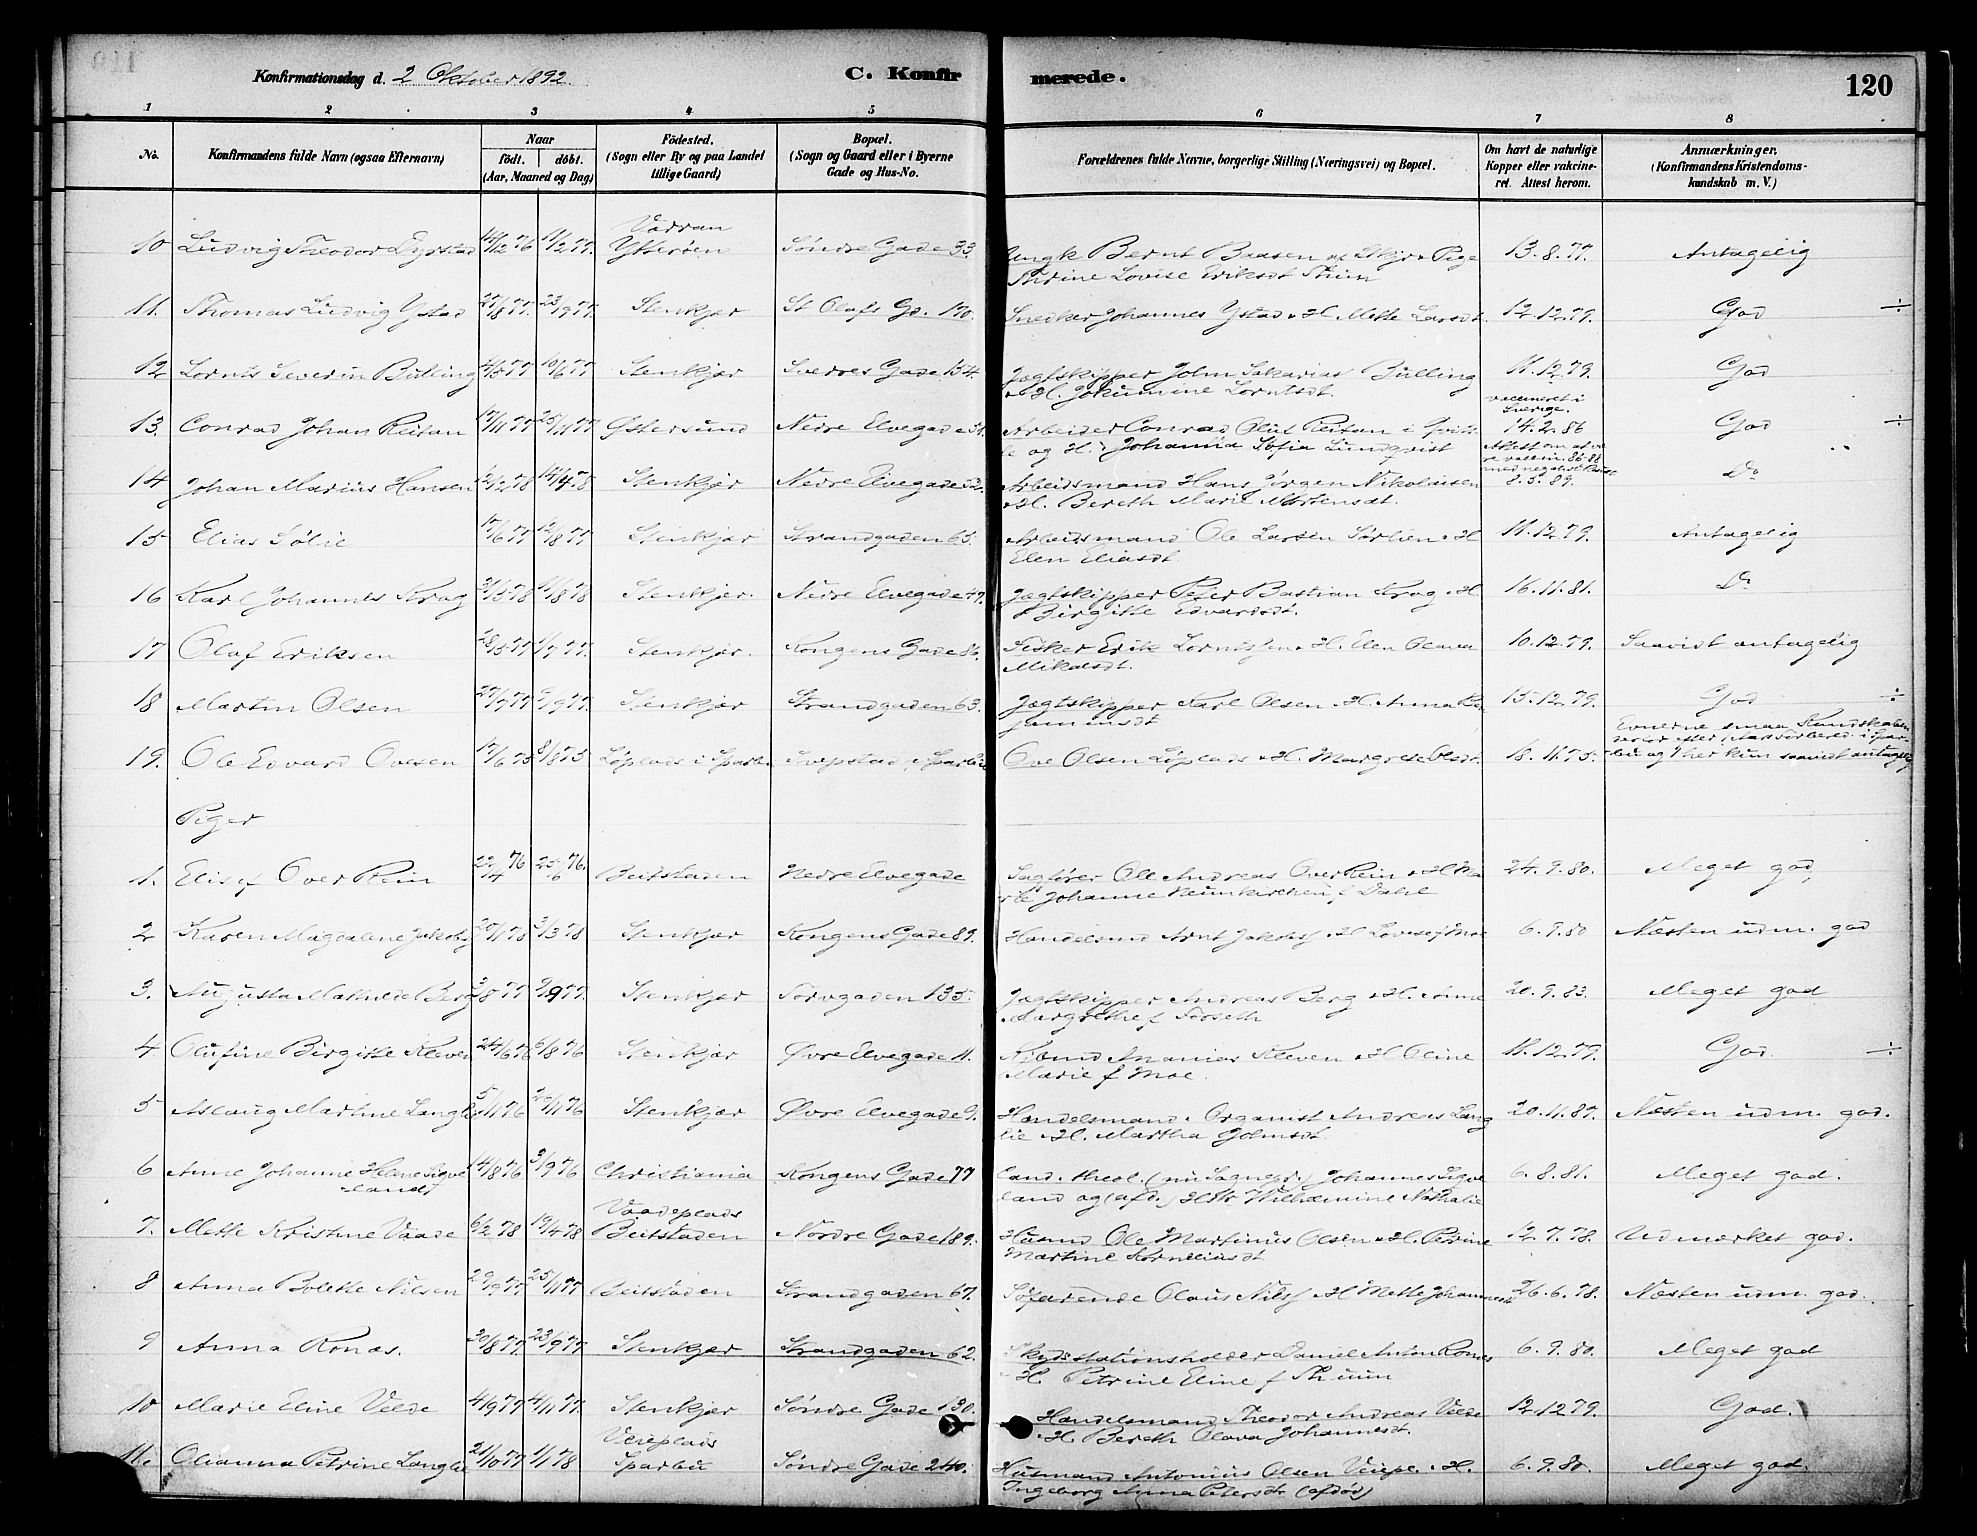 Konfirmationsdag d. 2 Oktober 1892. C. Konfirmerede. 120
1 2 3 4 5 6 7 8
No. Konfirmandens fulde Navn (ogsaa Efternavn) Naar födt. döbt. (Aar, Maaned og Dag) Födested. (Sogn eller By og paa Landet tillige Gaard) Bopæl. (Sogn og Gaard eller i Byerne Gade og Hus-No. Forældrenes fulde Navne, borgerlige Stilling (Næringsvei) og Bopæl. Om havt de naturlige Kopper eller vakcineret. Attest herom. Anmærkninger. (Konfirmandens Kristendomskundskab m. V.)
10 Ludvig Theodor Dyrstad 14/12 76 11/2 77. Ytterøen Søndre Gade 33. Ungk Bernt 13.8.77. Antagelig
Lovise Eriksdt
11. Thomas Ludvig Ystad 27/8 77. 23/9 77. Stenkjær St Olafs Gd. 170. Snedker Johannes Ystad & H. Mette Larsdt. 12.12.79. God ÷
12 Lornts Severin Bulling 4/5 77 10/6 77 Stenkjær Sverres Gade 154. Jægtskipper John Sakarias Bulling 11.12.79. God
& H. Jokumine Lorntsdt.
vaccineret i Sverige.
13. Conrad Johan Reitan 17/11 77 25/11 77 Østersund Nedre Elvegade 51. Arbeider Conrad Olut Reitan 14.2.86 God ÷
og H. Johanna Sofia Lundqvist
14 Johan Marius Hansen 12/2 78 14/4 78 Stenkjær Nedre Elvegade 52. Arbeidsmand Hans Jørgen Nikolaisen 8.5.89. Do
& H. Bereth Marie Mortensdt.
15 Elias Sølie 17/6 77 12/8 77 Stenkjær Strandgaden 65. Arbeidsmand Ole Larsen Sørlien & H 11.12.79. Antagelig
Elen Eliasdt.
16 Karl Johannes Krog 31/5 78 11/8 78 Stenkjær. Nedre Elvegade 47. Jægtskipper Peter Bastian Krog & H. 16.11.81. Do
Birgitte Edvardsdt.
17 Olaf Eriksen 28/5 77 1/7 77. Stenkjær. Kongens Gade 86. Fisker Erik Lorntssen & H. Elen Olava 10.12.79. Saavidt antagelig
Mikalsdt.
18 Martin Olsen 27/7 77. 9/9 77. Stenkjær Strandgaden 63. Jægtskipper Karl Olsen & H. Anna 15.12.79. God ÷
19. Ole Edvard Ovesen 17/6 75 8/8 75 Løplads i Sparbu Ove Olsen Løplads & H. Margrete Olsdt. 18.11.75. Evnerne smaa
og 1 her kun saavidt antagelig
Piger
1. Elis f Over Rein 22/4 76 25/6 76. Beitstaden Nedre Elvegade Sagfører Ole Andreas OverRein & H Marie Johanne f Dahl 24.9.80. Meget god,
2 Karen Magdalene Jakobs 20/1 78 3/3 78 Stenkjær Kongens Gade 89. Handelsmd Arnt Jakobs & H Lovise f Moe 6.9.80 Næsten udm. god
3. Augusta Mathilde Berg 3/8 77 9/9 77. Stenkjær Torvgaden 135. Jægtskipper Andreas Berg & H. Anne 20.9.83. Meget god
Margrethe f Forseth
4 Olufine Birgitte Kleven 24/6 76 6/8 76 Stenkjær Øvre Elvegade 11. Ananias Kleven & H Oline 11.12.79. God. ÷
Marie f Moe.
5 Aslaug Martine Langlie 5/11 76 11 76 Stenkjær Øvre Elvegade 9. Handelsmand & Organist Andreas Lang 20.11.87. Næsten udm. god.
lie & H. Martha Johnsdt.
6 Anne Johanne Helene Sigve 14/8 76 3/9 76 Christiania Kongens Gade 77 Cand. theol. (nu Sognepr.) Johannes Sigve 6.8.81. Meget god.
land land og (afd.) Hstr Wilhelmine Nathalie
7. Mette Kristine Vaade 6/2 78 19/4 78 Vaadeplads Beitstaden Nordre Gade 189. Husmd Ole Martinus Olsen & H. Petrine 12.7.78. Udmærket god.
Martine Korneliusdt
8 Anna Bolette Nilsen 29/9 77 25/11 77 Beitstaden Strandgaden 67. Søfarende Olaus Nils & H Mette Johannesdt 26.6.78. Næsten udm. god.
9 Anna Ronæs. 30/8 77. 23/9 77. Stenkjær Strandgaden 62. Skydsstationsholder Daniel Anton Ronæs 6.9.80. Meget god
& H. Petrine Eline f Thuun
10 Marie Eline Velde 4/9 77 4/11 77. Stenkjær Søndre Gade 130. Handelsmand Theodor Andreas Velde 12.12.79. God.
& H. Bereth Olava Johannesdt.
11. Olianna Petrine Langlie 21/10 77 1/1 78 Veieplads Sparbu Søndre Gade 240. Husmand Antonius Olsen Veiepl. & H. 6.9.80. Meget god.
Ingeborg Anna Petersdt (afdød)